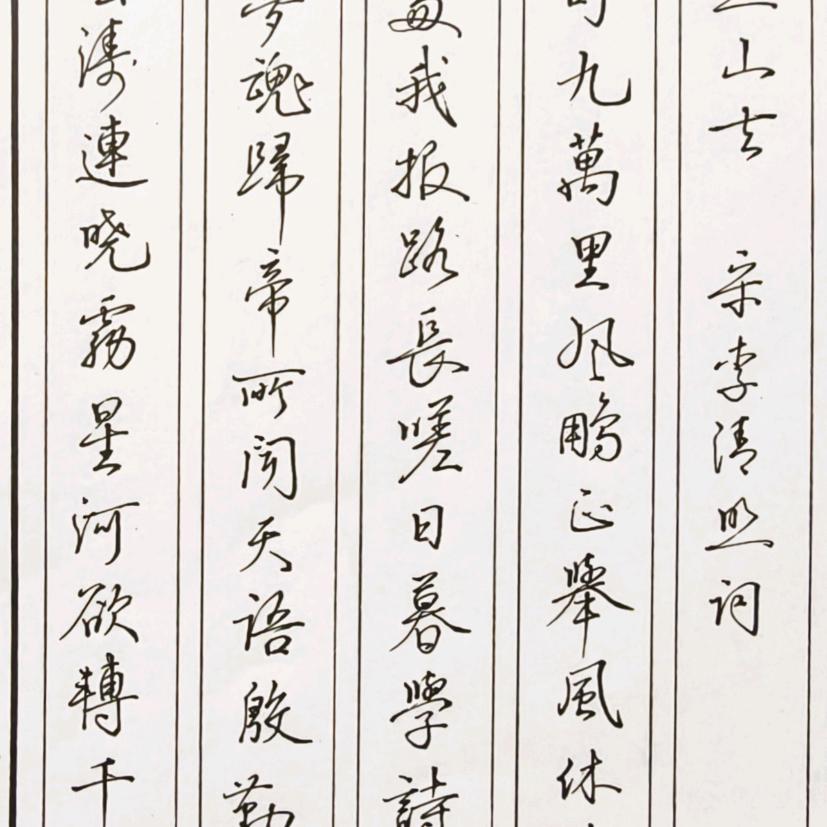 涛連晓霧星河欲轉千
魂歸帝所聞天語殷勤
我报路長嗟日暮學詩
九萬里风鵬正舉風休
山去 宋李清照词